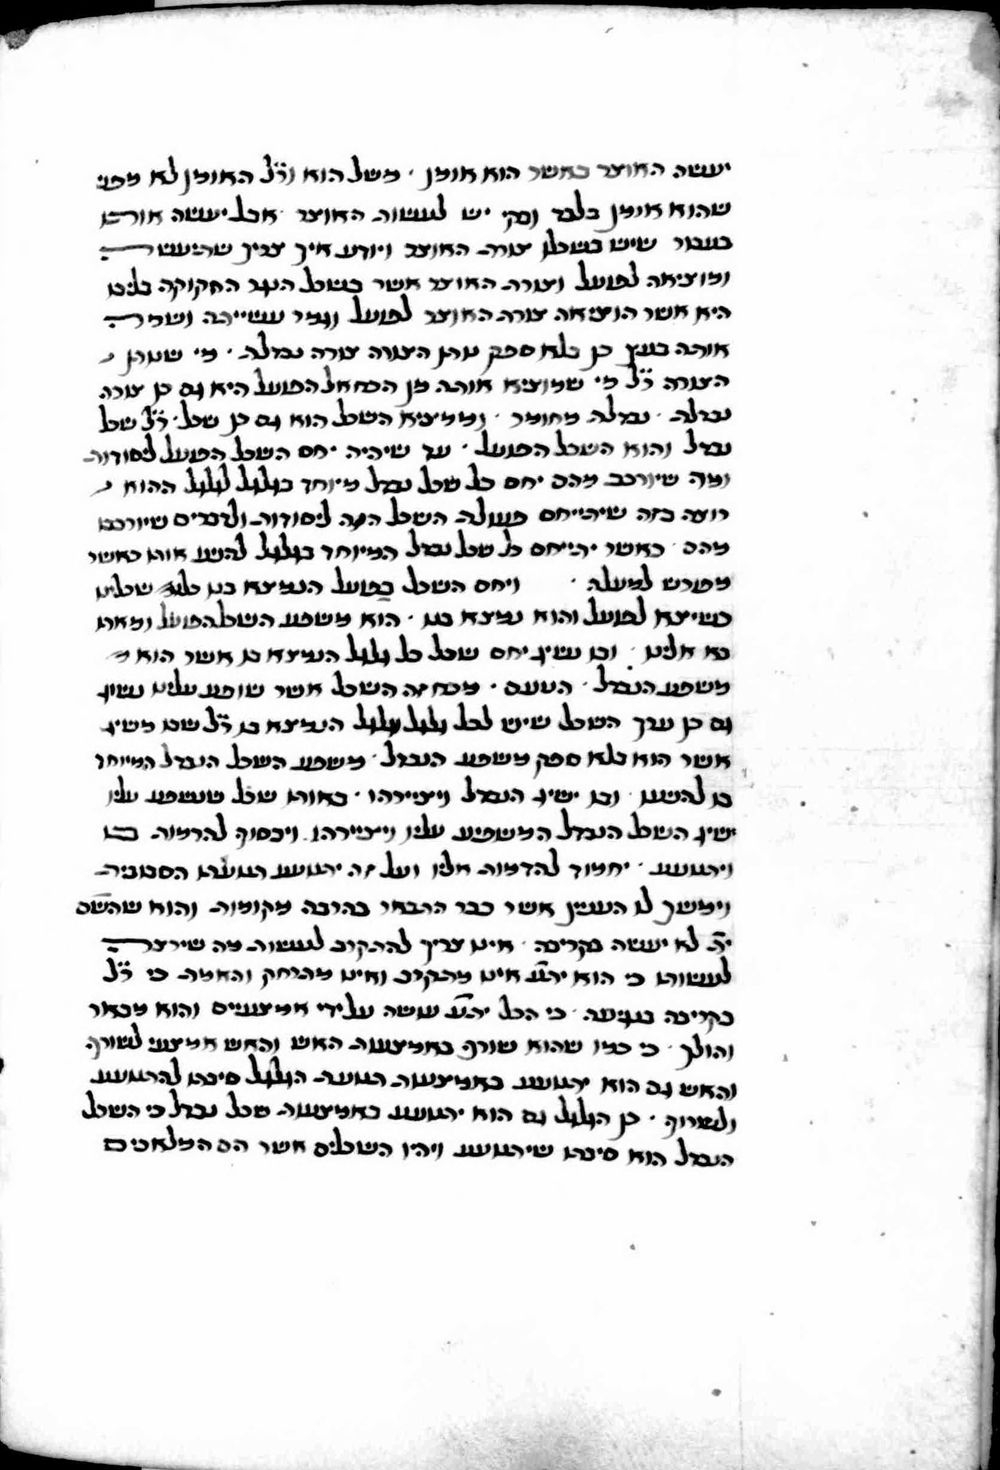 יעשה האוצר כאשר הוא אומן · משל הוא ור״ל האומן לא מפני
שהוא אומן בלבד וסקי יש לעשות האוצר אבל יעשה אותו
בעבור שיש בשכלו צורת האוצר ויודע איך צריך שתיעשה
ומוציאה לפועל וצורת האוצר אשר בשכל הנגר החקוקה בליבו
היא אשר הוציאה צורת האוצר לפועל וגמר עשייתה ושמה
אותה בעץ כן בלא ספק נותן הצורה צורה נבדלת · מי שנותן
הצורה ר״ל מי שמוציא אותה מן הכח אל הפועל היא גם כן צורה
נבדלת · נבדלת מחומר · וממציא השכל הוא גם כן שכל · ר״ל שכל
נבדל והוא השכל הפועל · עד שיהיה יחס השכל הפועל ליסודות
ומה שיורכב מהם יחס כל שכל נבדל מיוחד בגלגל לגלגל ההוא
רוצה בזה שיתייחס פעולת השכל הזה ליסודות ולדברים שיורכבו
מהם · כאשר יתייחס כל שכל נבדל המיוחד בגלגל להניע אותו כאשר
מפורש למעלה · ויחס השכל בפועל הנמצא בנו כלומ׳ שכלינו
כשיצא לפועל והוא נמצא בנו · הוא משפע השכל הפועל ומאתו
בא אלינו · ובו נשיג יחס שכל כל גלגל הנמצא בו אשר הוא
משפע הנבדל · הטעם · מכח זה השכל אשר שופע עלינו נשיג
גם כן ערך השכל שיש לכל גלגל וגלגל הנמצא בו ר״ל שבו משיג
אשר הוא בלא ספק משפע הנבדל · משפע השכל הנבדל המיוחד
בו להניעו · ובו ישיג הנבדל ויציירהו · באותו שכל שנשפע עליו
ישיג השכל הנבדל המשפיע עליו ויציירהו · ויכסוף להדמות בו
ויתנועע · יחמוד להדמות אליו ועל זה יתנועע תנועתו הסבובית
וימשך לו הענין אשר כבר התבאר בהרבה מקומות והוא שהשם
ית׳ לא יעשה בקריבה · אינו צריך להתקרב לעשות מה שירצה
לעשותו כי הוא ית׳ע אינו מתקרב ואינו מתרחק והאמת כי ר״ל
בקריבה בנגיעה · כי הכל ית׳ע עושה על ידי אמצעיים והוא מבאר
והולך · כי כמו שהוא שורף באמצעות האש והאש אמצעי לשורף
והאש גם הוא יתנועע באמצעות תנועת הגלגל סיבתו להתנועע
ולשרוף · כן הגלגל גם הוא יתנועע באמצעות שכל נבדל כי השכל
הנבדל הוא סיבתו שיתנועע ויהיו השכלים אשר הם המלאכים